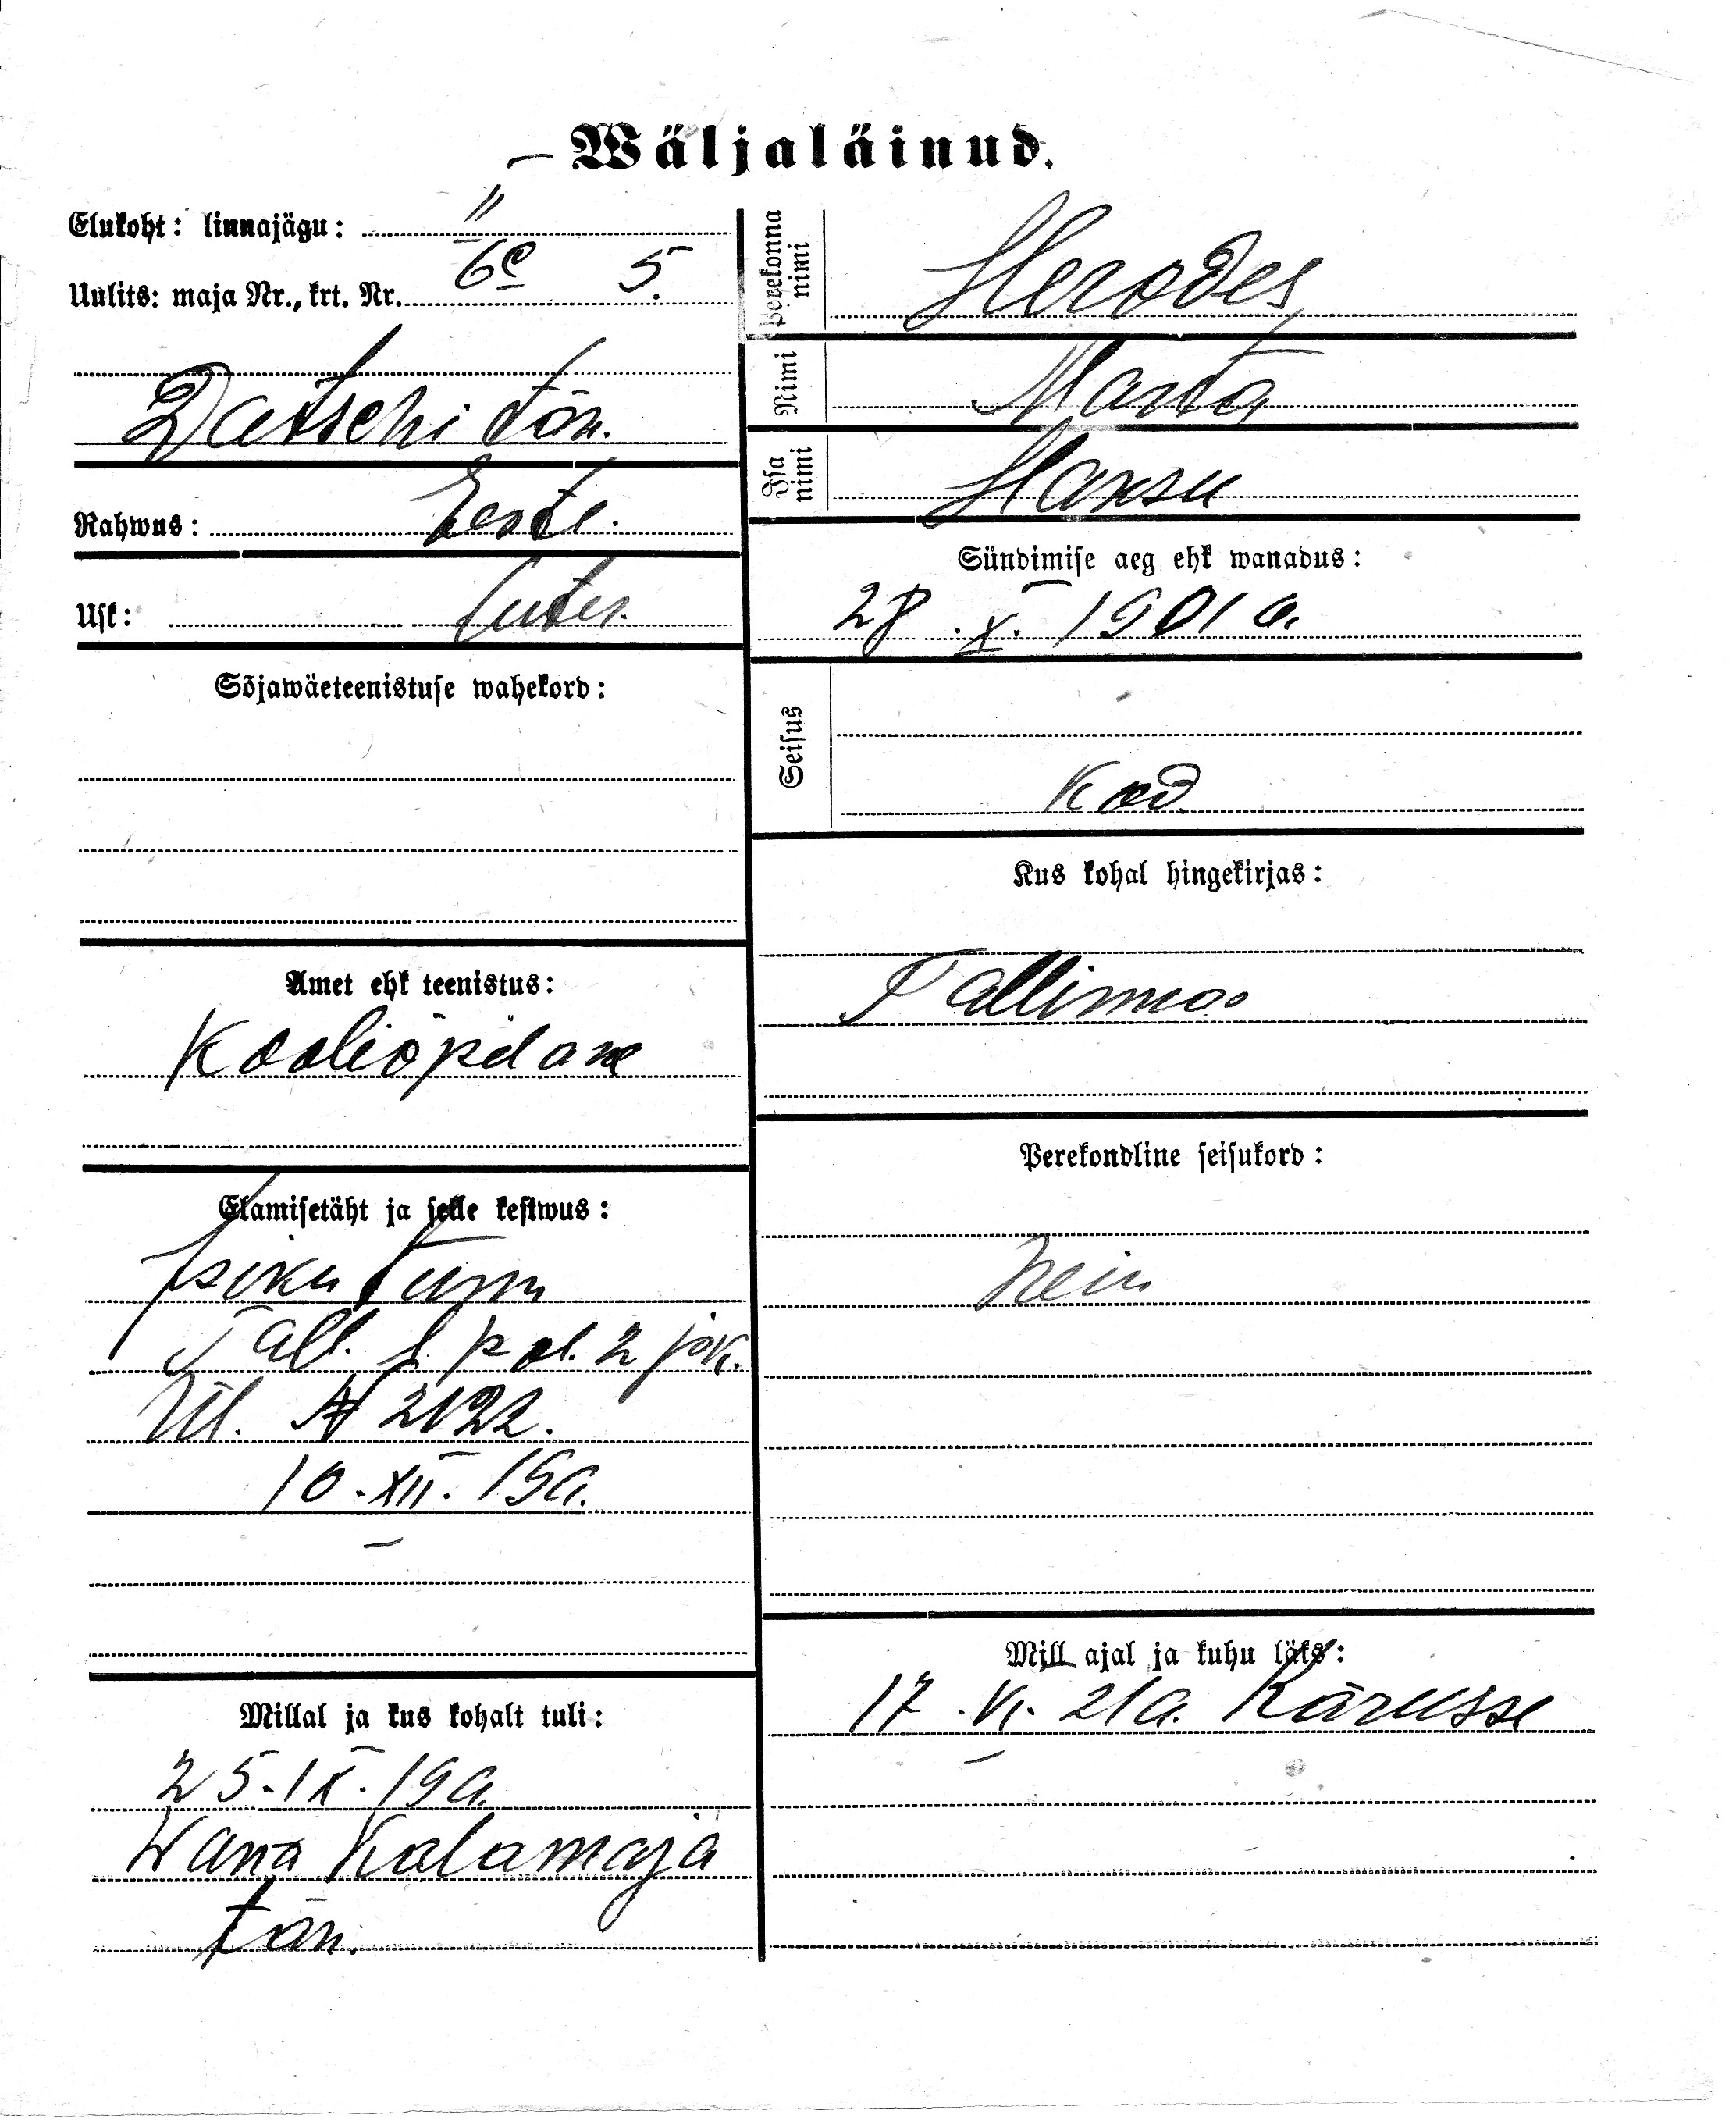 Wäljaläinud.
Elukoht: linnajägu: II
Uulits: maja Nr., krt. Nr. 6e 5.
Datschi tän.
Rahwus: Eesti.
Usk: Luter.
Sõjawäeteenistuse wahekord:
Amet ehk teenistus:
Kooliõpilane
Elamisetäht ja selle kestwus:
Isiku tunn
Tall. l. pol. 2 jsk.
Ül. № 2122.
10.XII.19a.
Millal ja kus kohalt tuli:
25.IX.19a.
Wana Kalamaja
tän.
Perekonna nimi Herodes
Nimi Marta
Isa nimi Hansu
Sündimise aeg ehk wanadus:
28.X.1901a.
Seisus
Kod
Kus kohal hingekirjas:
Tallinnas
Perekondline seisukord:
Neiu
Mill ajal ja kuhu läks:
17.VI.21a. Kärusse